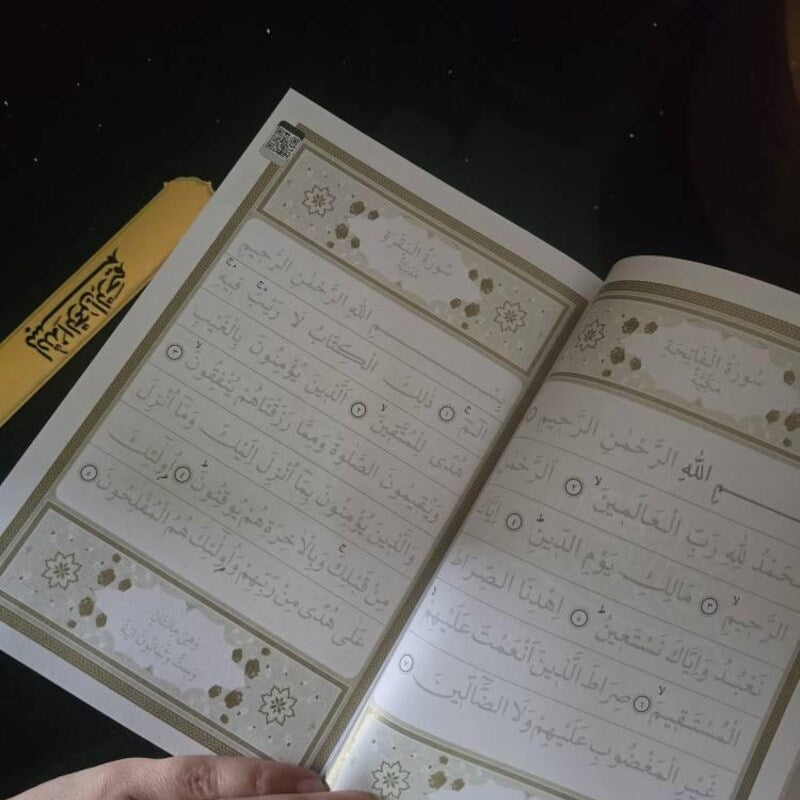 سُورَةُ الْفَاتِحَةِ
مَكِّيَّةٌ
ـمِ اللهِ الرَّحْمٰنِ الرَّحِيمِ
ـحَمْدُ لِلّٰهِ رَبِّ الْعَالَمِينَ ٢ اَلرَّحْمٰنِ
الرَّحِيمِ ٣ مَالِكِ يَوْمِ الدِّينِ ٤ اِيَّاكَ
نَعْبُدُ وَاِيَّاكَ نَسْتَعِينُ ٥ اِهْدِنَا الصِّرَاطَ
الْمُسْتَقِيمَ ٦ صِرَاطَ الَّذِينَ اَنْعَمْتَ عَلَيْهِمْ
غَيْرِ الْمَغْضُوبِ عَلَيْهِمْ وَلَا الضَّالِّينَ ٧
سُورَةُ الْبَقَرَةِ
مَدَنِيَّةٌ
بِسْمِ اللهِ الرَّحْمٰنِ الرَّحِيمِ
الٓمٓ ١ ذٰلِكَ الْكِتَابُ لَا رَيْبَ فِيهِ
هُدًى لِلْمُتَّقِينَ ٢ اَلَّذِينَ يُؤْمِنُونَ بِالْغَيْبِ
وَيُقِيمُونَ الصَّلٰوةَ وَمِمَّا رَزَقْنَاهُمْ يُنْفِقُونَ ٣
وَالَّذِينَ يُؤْمِنُونَ بِمَا اُنْزِلَ اِلَيْكَ وَمَا اُنْزِلَ
مِنْ قَبْلِكَ وَبِالْاٰخِرَةِ هُمْ يُوقِنُونَ ٤ اُولٰئِكَ
عَلٰى هُدًى مِنْ رَبِّهِمْ وَاُولٰئِكَ هُمُ الْمُفْلِحُونَ ٥
وَهِيَ مِائَتَانِ
وَسِتٌّ وَثَمَانُونَ اٰيَةً
بسم الله الرحمن الرحيم